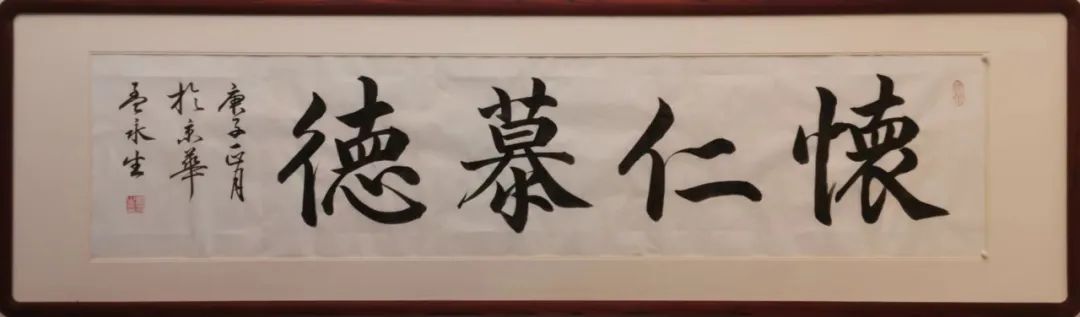 懷仁慕德
庚子正月
於京華
孟永生